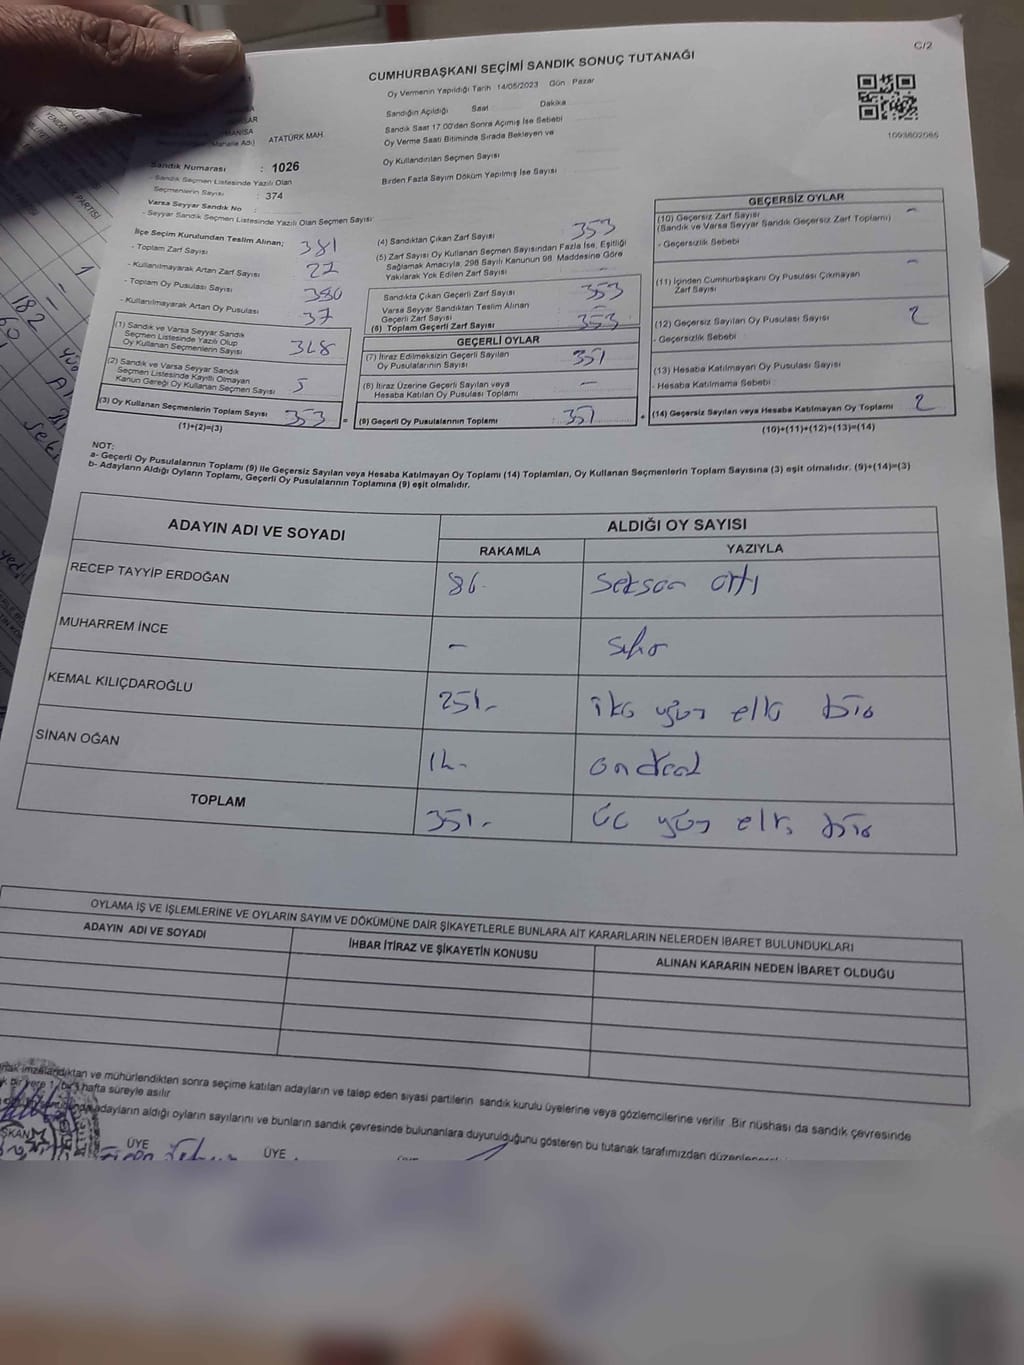 C/2
CUMHURBAŞKANI SEÇİMİ SANDIK SONUÇ TUTANAĞI
Oy Vermenin Yapıldığı Tarih : 14/05/2023 Gün : Pazar
Sandığın Açıldığı Saat Dakika
Sandık Saat 17.00'den Sonra Açımış İse Sebebi
Oy Verme Saati Bitiminde Sırada Bekleyen ve
Oy Kullandırılan Seçmen Sayısı
Birden Fazla Sayım Döküm Yapılmış İse Sayısı
1093802065
MANİSA
Mahalle Adı) ATATÜRK MAH.
Sandık Numarası : 1026
- Sandık Seçmen Listesinde Yazılı Olan
Seçmenlerin Sayısı : 374
Varsa Seyyar Sandık No :
- Seyyar Sandık Seçmen Listesinde Yazılı Olan Seçmen Sayısı:
İlçe Seçim Kurulundan Teslim Alınan;
- Toplam Zarf Sayısı 381
- Kullanılmayarak Artan Zarf Sayısı
- Toplam Oy Pusulası Sayısı
- Kullanılmayarak Artan Oy Pusulası 37
(1) Sandık ve Varsa Seyyar Sandık
Seçmen Listesinde Yazılı Olup
Oy Kullanan Seçmenlerin Sayısı
(2) Sandık ve Varsa Seyyar Sandık
Seçmen Listesinde Kayıtlı Olmayan
Kanun Gereği Oy Kullanan Seçmen Sayısı 5
(3) Oy Kullanan Seçmenlerin Toplam Sayısı 353
(1)+(2)=(3)
(4) Sandıktan Çıkan Zarf Sayısı 353
(5) Zarf Sayısı Oy Kullanan Seçmen Sayısından Fazla İse, Eşitliği
Sağlamak Amacıyla, 298 Sayılı Kanunun 98. Maddesine Göre
Yakılarak Yok Edilen Zarf Sayısı -
Sandıkta Çıkan Geçerli Zarf Sayısı 353
Varsa Seyyar Sandıktan Teslim Alınan
Geçerli Zarf Sayısı
(6) Toplam Geçerli Zarf Sayısı 353
GEÇERLİ OYLAR
(7) İtiraz Edilmeksizin Geçerli Sayılan
Oy Pusulalarının Sayısı 351
(8) İtiraz Üzerine Geçerli Sayılan veya
Hesaba Katılan Oy Pusulası Toplamı -
(9) Geçerli Oy Pusulalarının Toplamı : 351
GEÇERSİZ OYLAR
(10) Geçersiz Zarf Sayısı -
(Sandık ve Varsa Seyyar Sandık Geçersiz Zarf Toplamı)
- Geçersizlik Sebebi
(11) İçinden Cumhurbaşkanı Oy Pusulası Çıkmayan -
Zarf Sayısı
(12) Geçersiz Sayılan Oy Pusulası Sayısı 2
- Geçersizlik Sebebi
(13) Hesaba Katılmayan Oy Pusulası Sayısı
- Hesaba Katılmama Sebebi
(14) Geçersiz Sayılan veya Hesaba Katılmayan Oy Toplamı 2
(10)+(11)+(12)+(13)=(14)
NOT:
a- Geçerli Oy Pusulalarının Toplamı (9) ile Geçersiz Sayılan veya Hesaba Katılmayan Oy Toplamı (14) Toplamları, Oy Kullanan Seçmenlerin Toplam Sayısına (3) eşit olmalıdır. (9)+(14)=(3)
b- Adayların Aldığı Oyların Toplamı, Geçerli Oy Pusulalarının Toplamına (9) eşit olmalıdır.
ADAYIN ADI VE SOYADI ALDIĞI OY SAYISI
RAKAMLA YAZIYLA
RECEP TAYYİP ERDOĞAN 86 seksen altı
MUHARREM İNCE - sıfır
KEMAL KILIÇDAROĞLU 251 iki yüz elli bir
SİNAN OĞAN 14 on dört
TOPLAM 351 üç yüz elli bir
OYLAMA İŞ VE İŞLEMLERİNE VE OYLARIN SAYIM VE DÖKÜMÜNE DAİR ŞİKAYETLERLE BUNLARA AİT KARARLARIN NELERDEN İBARET BULUNDUKLARI
ADAYIN ADI VE SOYADI İHBAR İTİRAZ VE ŞİKAYETİN KONUSU ALINAN KARARIN NEDEN İBARET OLDUĞU
imzalandıktan ve mühürlendikten sonra seçime katılan adayların ve talep eden siyasi partilerin sandık kurulu üyelerine veya gözlemcilerine verilir. Bir nüshası da sandık çevresinde
bir yere 1 bir hafta süreyle asılır
adayların aldığı oyların sayılarını ve bunların sandık çevresinde bulunanlara duyurulduğunu gösteren bu tutanak tarafımızdan
ÜYE ÜYE